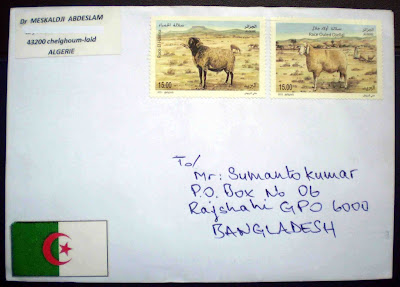 Dr MESKALDJI ABDESLAM
43200 chelghoum-laid
ALGERIE
15.00
الجزائر
15.00
الجزائر
To/
Mr: Sumanto Kumar
P.O. Box No 06
Rajshahi GPO 6000
BANGLADESH